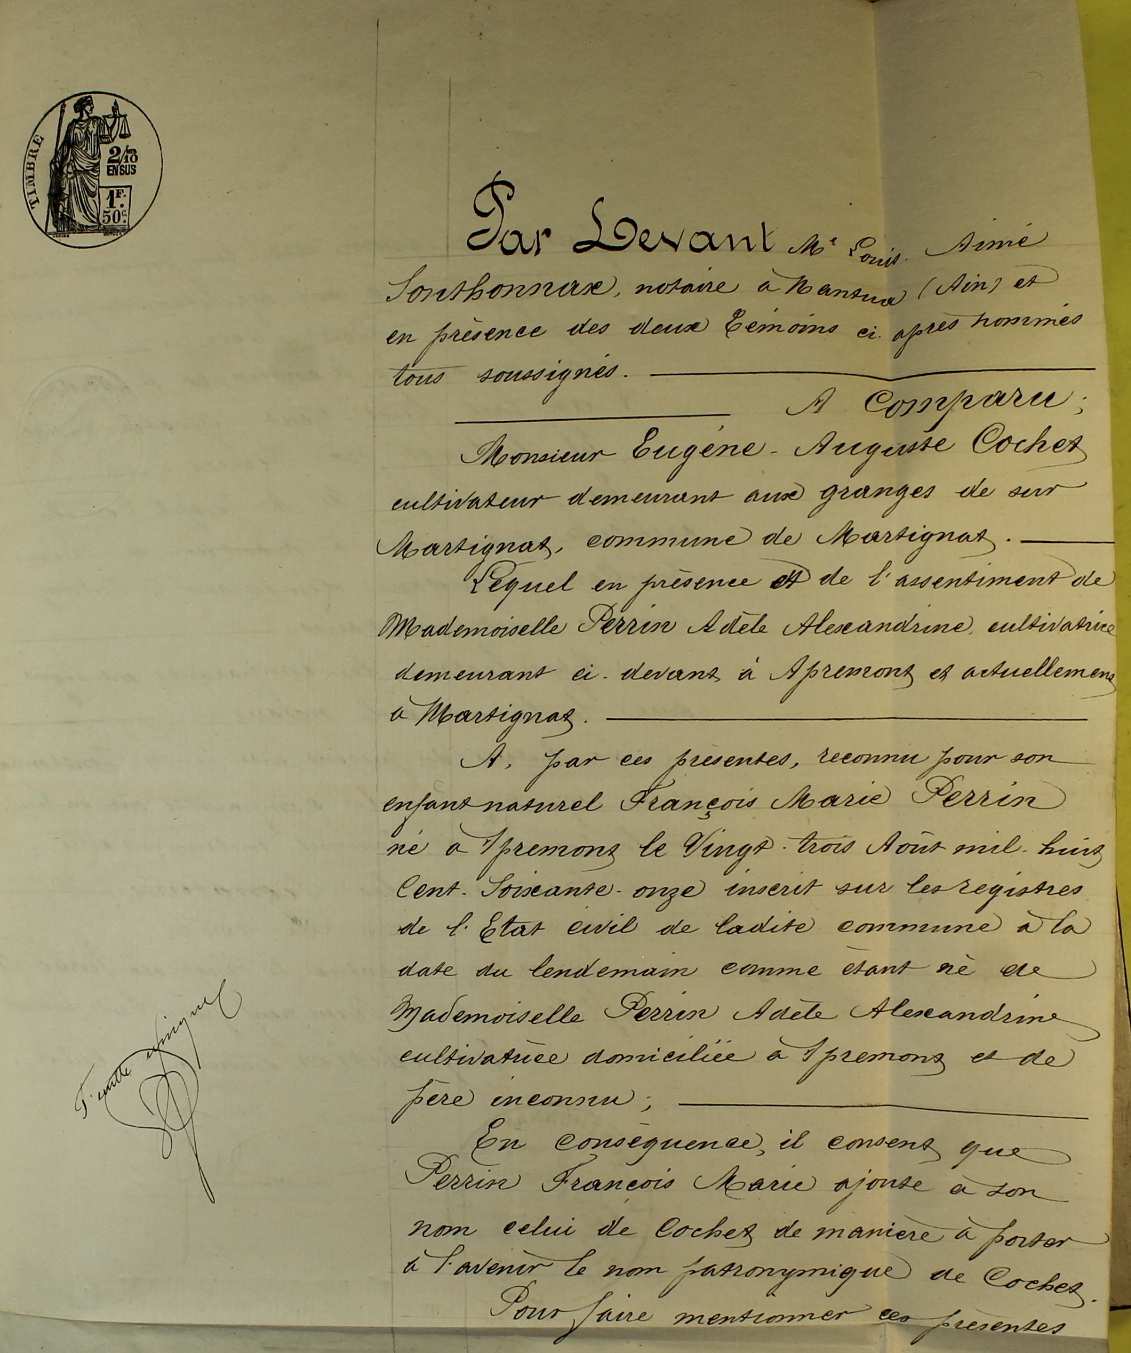 TIMBRE
2/10
EN SUS
1F.
50c.
Par Devant Me Louis Aimé
Sonthonnax, notaire à Nantua (Ain) et
en présence des deux Témoins ci après nommés
tous soussignés.
A Comparu;
Monsieur Eugène-Auguste Cochet
cultivateur demeurant aux granges de sur
Martignat, commune de Martignat.
Lequel en présence et de l'assentiment de
Mademoiselle Perrin Adèle Alexandrine, cultivatrice
demeurant ci-devant à Apremont et actuellement
à Martignat.
A, par ces présentes, reconnu pour son
enfant naturel François Marie Perrin
né à Apremont le Vingt-trois Août mil-huit
Cent-Soixante-onze inscrit sur les registres
de l'Etat civil de ladite commune à la
date du lendemain comme étant né de
Mademoiselle Perrin Adèle Alexandrine
cultivatrice domiciliée à Apremont et de
père inconnu;
En conséquence, il consent que
Perrin François Marie ajoute à son
nom celui de Cochet de manière à porter
à l'avenir le nom patronymique de Cochet.
Pour faire mentionner ces présentes
Feuille unique